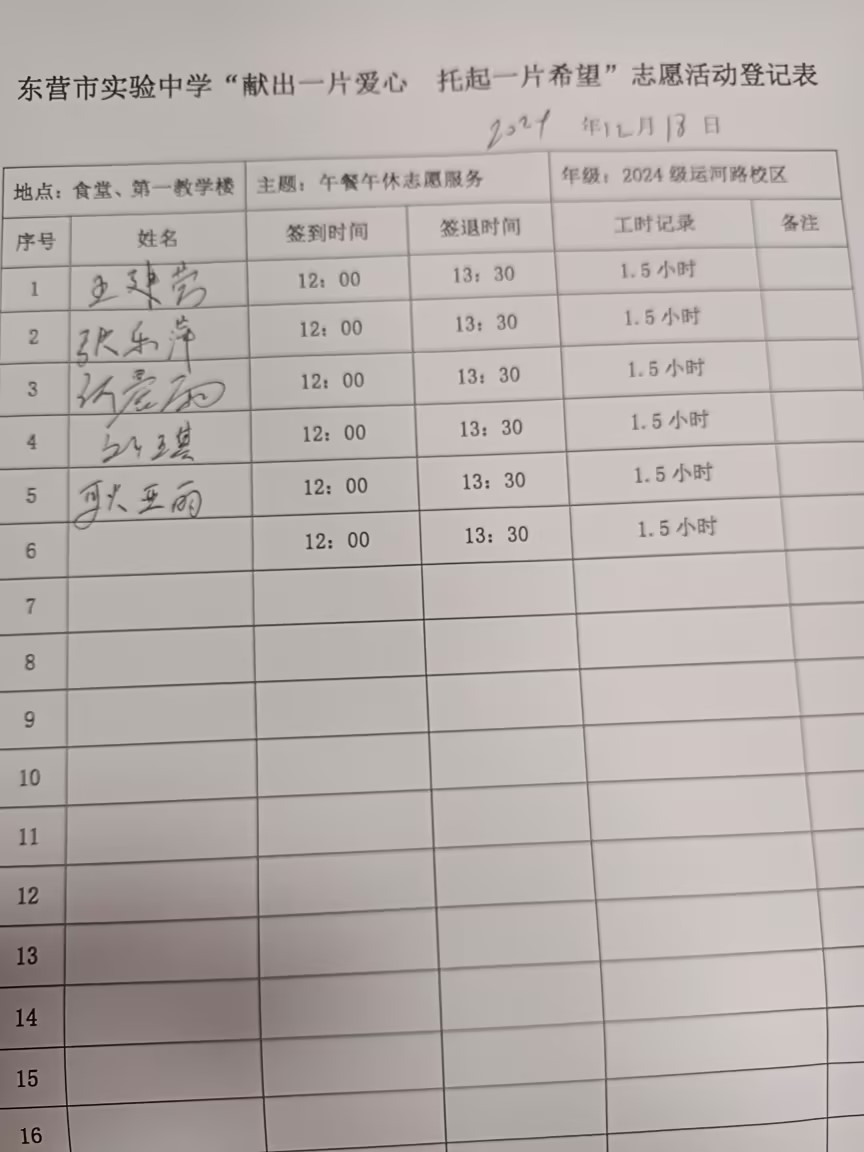 东营市实验中学“献出一片爱心 托起一片希望”志愿活动登记表
2024 年12月18日
地点：食堂、第一教学楼 主题：午餐午休志愿服务 年级：2024级运河路校区
序号 姓名 签到时间 签退时间 工时记录 备注
1 王建营 12：00 13：30 1.5小时
2 张乐萍 12：00 13：30 1.5小时
3 12：00 13：30 1.5小时
4 12：00 13：30 1.5小时
5 耿亚丽 12：00 13：30 1.5小时
6 12：00 13：30 1.5小时
7
8
9
10
11
12
13
14
15
16